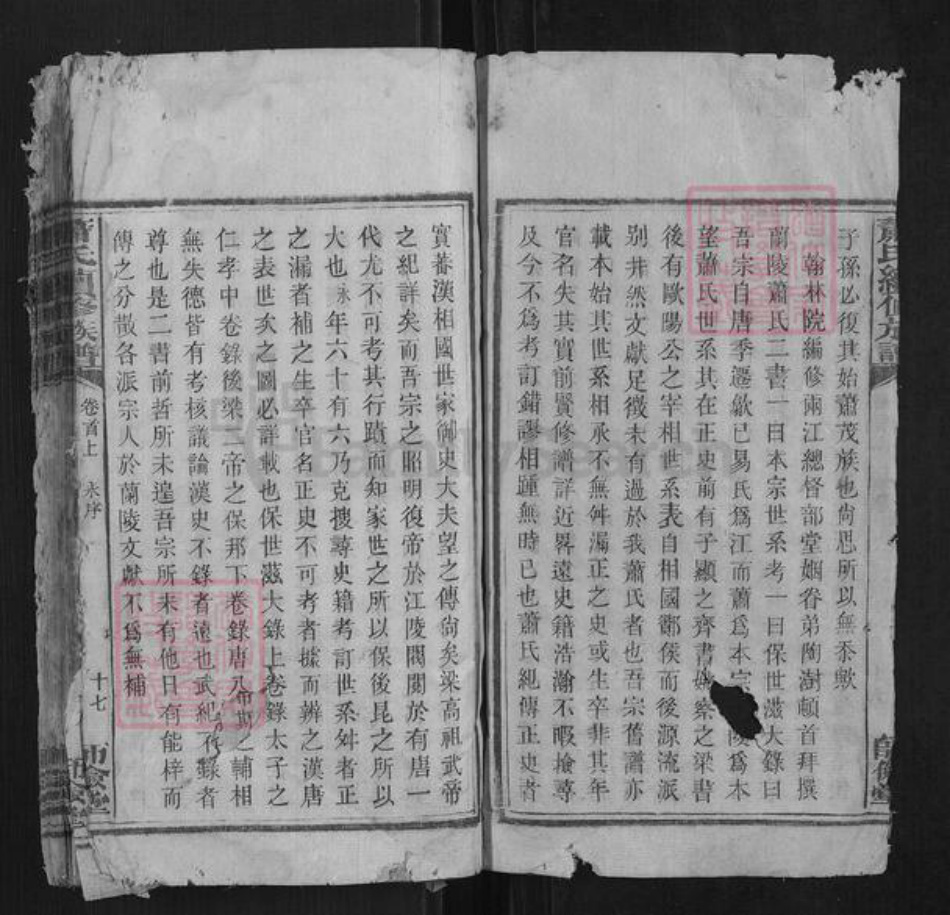 子孫必復其始蕭茂族也尙思所以無忝歟
翰林院編修兩江總督部堂姻眷弟陶澍頓首拜撰
蘭陵蕭氏二書一曰本宗世系考一曰保世滋大錄曰
吾宗自唐季遷歙已易氏爲江而蕭爲本宗 陵爲本
望蕭氏世系其在正史前有子顯之齊書姚察之梁書
後有歐陽公之宰相世系表自相國酇侯而後源流派
別井然文獻足徵未有過於我蕭氏者也吾宗舊譜亦
載本始其世系相承不無舛漏正之史或生卒非其年
官名失其實前賢修譜詳近畧遠史籍浩瀚不暇撿尋
及今不爲考訂錯謬相踵無時已也蕭氏紀傳正史者
實蕃漢相國世家御史大夫望之傳尙矣梁高祖武帝
之紀詳矣而吾宗之昭明復帝於江陵閥閱於有唐一
代尤不可考其行蹟而知家世之所以保後昆之所以
大也永年六十有六乃克搜尋史籍考訂世系舛者正
之漏者補之生卒官名正史不可考者據而辨之漢唐
之表世次之圖必詳載也保世滋大錄上卷錄太子之
仁孝中卷錄後梁二帝之保邦下卷錄唐八 之輔相
無失德皆有考核議論漢史不錄者遠也武紀不錄者
尊也是二書前哲所未遑吾宗所未有他日有能梓而
傳之分散各派宗人於蘭陵文獻不爲無補
蕭氏續修族譜
卷首上
永序
十七
師儉堂